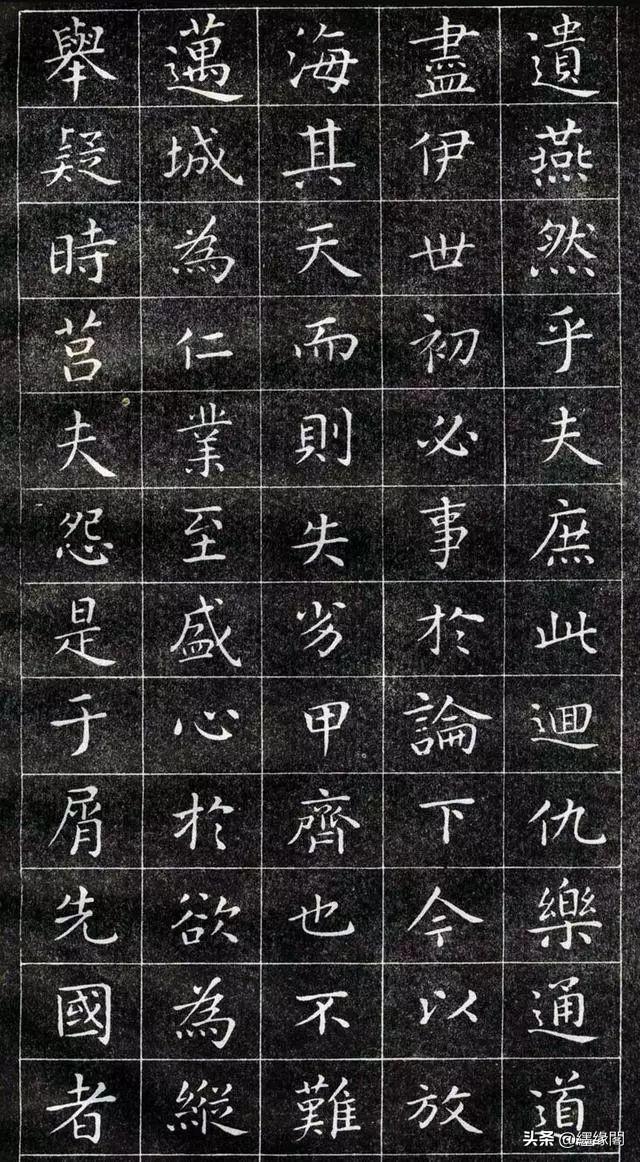 遺燕然乎夫庶此迴仇樂通道
盡伊世初必事於論下今以放
海其天而則失劣甲齊也不難
邁城為仁業至盛心於欲為縱
舉疑時莒夫怨是于屑先國者
头条